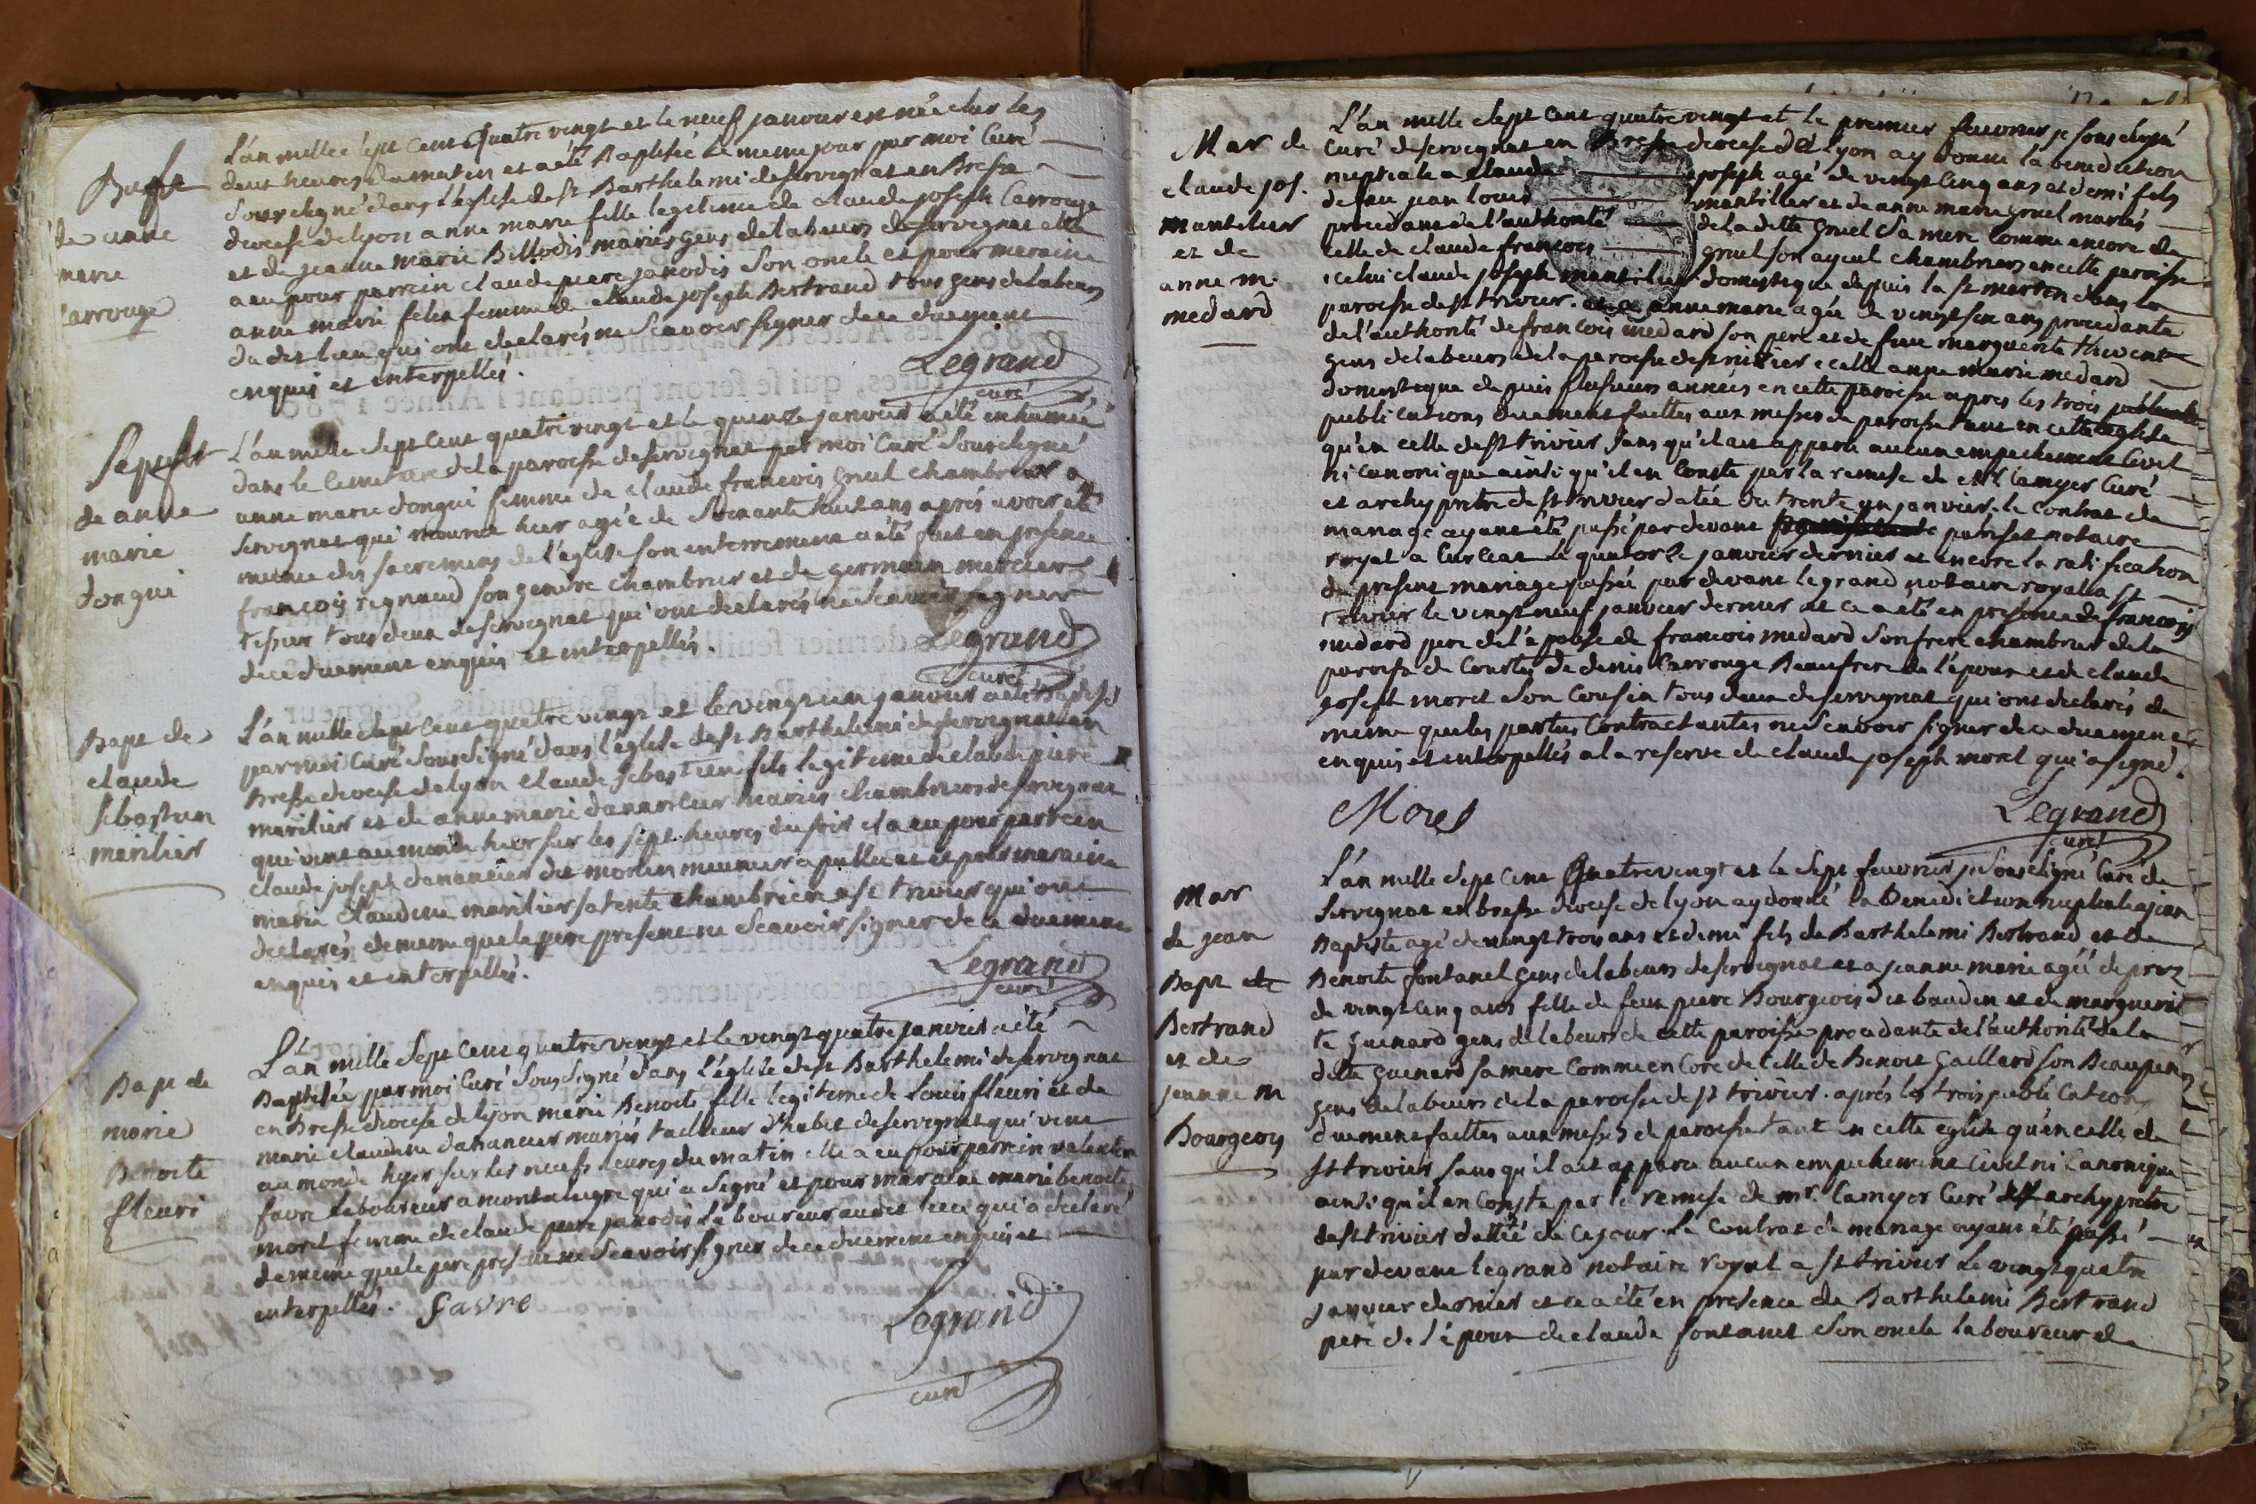 Bapt
de anne
marie
Carrouge
L'an mille sept cent Quatre vingt et le neuf janvier est née sur les
deux heures du matin et a été Baptisée le meme jour par moi Curé
soussigné dans l'église de st Barthelemi de servignat en Bresse
diocese de lyon anne marie fille legitime de claude joseph Carrouge
et de jeanne marie Billodis mariés gens de labeurs de servignat elle
a eu pour parrein claude piere janodis son oncle et pour meraine
anne marie felix femme de claude joseph Bertrand tous gens de labeurs
du dit lieu qui ont declarés ne scavoir signer de ce duement
enquis et interpellés.
Legrand
curé
Sepult
de anne
marie
dongui
L'an mille sept cent quatre vingt et le quinze janvier a été inhumée
dans le cimetiere de la paroisse de servignat par moi Curé soussigné
anne marie dongui femme de claude francois gruel chambrier a
servignat qui mourut hier agée de soixante huit ans aprés avoir été
munie des sacremens de l'eglise son enterrement a été fait en presence
de francois regnaud son gendre chambrier et de germain mercier
tissier tous deux de servignat qui ont declarés ne scavoir signer
de ce duement enquis et interpellés.
Legrand
curé
Bapt de
claude
sebastien
merilier
L'an mille sept cent quatre vingt et le vingt un janvier a été baptisé
par moi Curé soussigné dans l'église de st Barthelemi de servignat en
Bresse diocese de lyon claude sebastien fils legitime de claude piere
merilier et de anne marie danancier mariés chambriers de servignat
qui vint au monde hier sur les sept heures du soir il a eu pour parrein
claude joseph danancier dit morlin meunier a et pour meraine
marie claudine merilier sa tente chambriere a st trivier qui ont
declarés de meme que le pere present ne scavoir signer de ce duement
enquis et interpellés.
Legrand
curé
Bapt de
marie
Benoite
fleuri
L'an mille sept cent quatre vingt et le vingt quatre janvier a été
Baptisée par moi Curé soussigné dans l'église de st Barthelemi de servignat
en Bresse diocese de lyon marie Benoite fille legitime de Louis fleuri et de
marie claudine dananeur mariés tailleur d'habit de servignat qui vint
au monde hyer sur les neuf heures du matin elle a eu pour parrein valentin
favre laboureur a montalegre qui a signé et pour maraine marie benoite
morel femme de claude piere janodis laboureur audit lieu qui a declaré
de meme que le pere present ne scavoir signer de ce duement enquis et
interpellés. favre
Legrand
curé
Mar de
claude jos.
mantelier
et de
anne m.
medard
L'an mille sept cent quatre vingt et le premier feuvrier je soussigné
Curé de servignat en Bresse diocese de Lyon ay donné la benediction
nuptiale a claude joseph agé de vingt cinq ans et demi fils
de feu jean louis mantillier et de anne marie gruel mariés
procedant de l'authorité de la ditte gruel sa mere comme encore de
celle de claude francois gruel son ayeul chambriers en cette paroisse
icelui claude joseph mantilier domestique depuis la st martin dans la
paroisse de st trivier. et a anne marie agée de vingt six ans procedante
de l'authorité de francois medard son pere et de feue marguerite thevenet
gens de labeurs de la paroisse de st nizier icelle anne marie medard
domestique depuis plusieurs années en cette paroisse apres les trois publicati
publications duement faittes aux messes de paroisse tant en cette eglise
qu'en celle de st trivier sans qu'il ait apparu aucun empechement Civil
ni Canonique ainsi qu'il en Conste par la remise de Mr Camyer Curé
et archyprêtre de st trivier datée du trente un janvier. le contrat de
mariage ayant été passé par devant pariset notaire
royal a Curciat le quatorze janvier dernier et encore la ratification
du present mariage passée par devant legrand notaire royal a st
trivier le vingt neuf janvier dernier et ce a été en presence de francois
medard pere de l'epouse de francois medard son frere chambrier de la
paroisse de Courtes de denis Carrouge Beaufrere de l'époux et de claude
joseph morel son Cousin tous deux de servignat qui ont declarés de
meme que les parties Contractantes ne scavoir signer de ce duement
enquis et interpellés a la reserve de claude joseph morel qui a signé.
Morel
Legrand
curé
Mar
de jean
Bapt de
Bertrand
et de
jeanne m
Bourgeois
L'an mille sept cent Quatre vingt et le sept feuvrier je soussigné Curé de
servignat en bresse diocese de lyon ay donné la Benediction nuptiale a jean
Baptiste agé de vingt trois ans et demi fils de Barthelemi Bertrand et de
Benoite fontanel gens de labeurs de servignat et a jeanne marie agée de prez
de vingt cinq ans fille de feu piere Bourgeois dit baudin et de marguerit
te guenard gens de labeurs de cette paroisse procedante de l'authorité de la
ditte guenard sa mere Comme encore de Celle de Benoit gaillard son Beaupere
gens de labeurs de la paroisse de st trivier. aprés les trois publications
duement faittes aux messes de paroisse tant en cette eglise qu'en celle de
st trivier sans qu'il ait apparu aucun empechement Civil ni Canonique
ainsi qu'il en Conste par la remise de mr. Camyer Curé et archyprêtre
de st trivier dattée de ce jour. le Contrat de mariage ayant été passé
par devant legrand notaire royal a st trivier le vingt quatre
janvier dernier et ce a été en presence de Barthelemi Bertrand
pere de l'époux de claude fontanel son oncle laboureur de